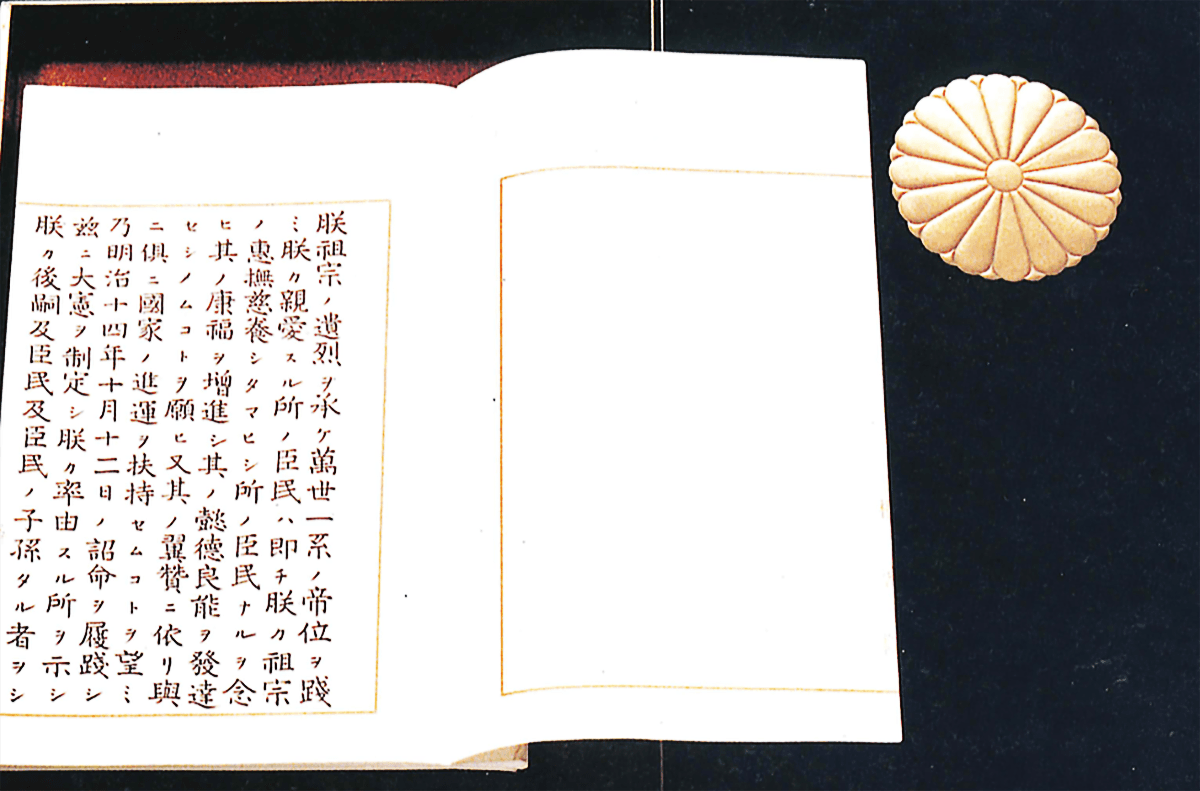 朕祖宗ノ遺烈ヲ承ケ萬世一系ノ帝位ヲ踐
ミ朕カ親愛スル所ノ臣民ハ即チ朕カ祖宗
ノ惠撫慈養シタマヒシ所ノ臣民ナルヲ念
ヒ其ノ康福ヲ增進シ其ノ懿德良能ヲ發達
セシノムコトヲ願ヒ又其ノ翼贊ニ依リ與
ニ俱ニ國家ノ進運ヲ扶持セムコトヲ望ミ
乃明治十四年十月十二日ノ詔命ヲ履踐シ
茲ニ大憲ヲ制定シ朕カ率由スル所ヲ示シ
朕カ後嗣及臣民及臣民ノ子孫タル者ヲシ